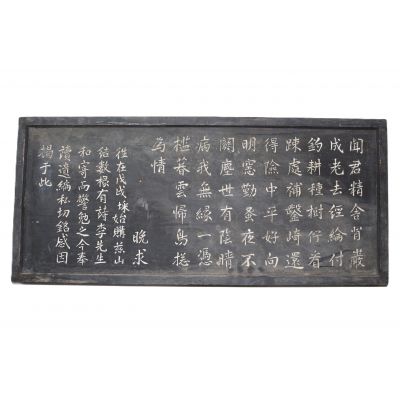 聞君精舍肯巖
成老去經綸付
釣耕種樹佇看
踈處補鑿崎還
得險中平好向
明窓勤蚤夜不
關塵世有陰晴
病我無緣一憑
檻暮雲歸鳥摠
為情
晚求
往在戊戌埰始購玆山
結數椽有詩李先生
和寄而警勉之今奉
讀遺編私切銘感因
揭于此